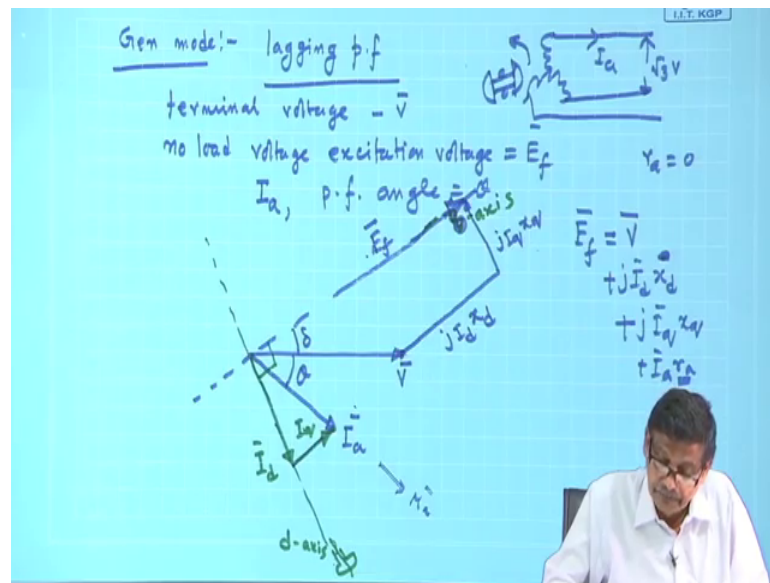 I.I.T. KGP
Gen mode:- lagging p.f
terminal voltage - V̄
no load voltage excitation voltage = Ē_f
I_a, p.f. angle = θ
I_a
√3 V
r_a = 0
axis
Ē_f
jI_q x_q
Ē_f = V̄
+ jĪ_d x_d
+ jĪ_q x_q
+ Ī_a r_a
δ
jI_d x_d
θ
V̄
I_q
Ī_a
Ī_d
d-axis